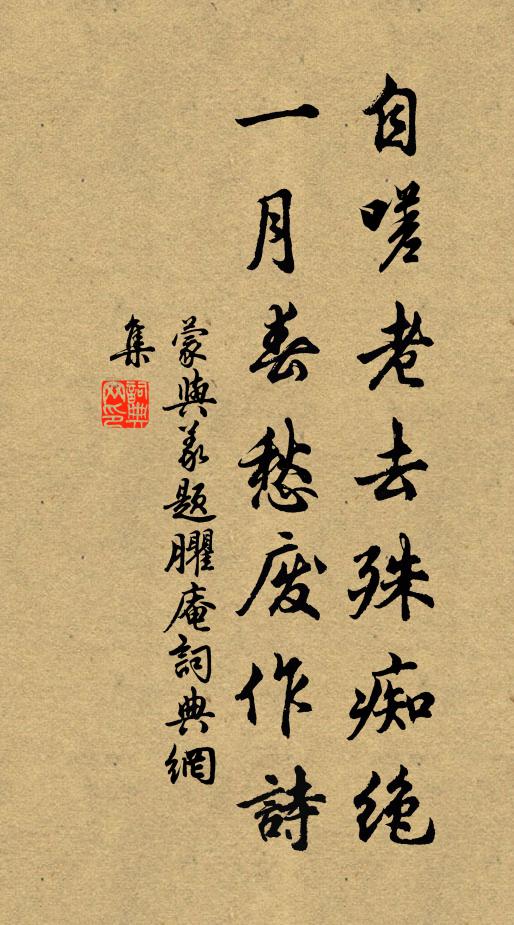 自嗟老去殊痴绝
一月春愁废作詩
蒙與義題臞庵詞典網
集
詞典
网印